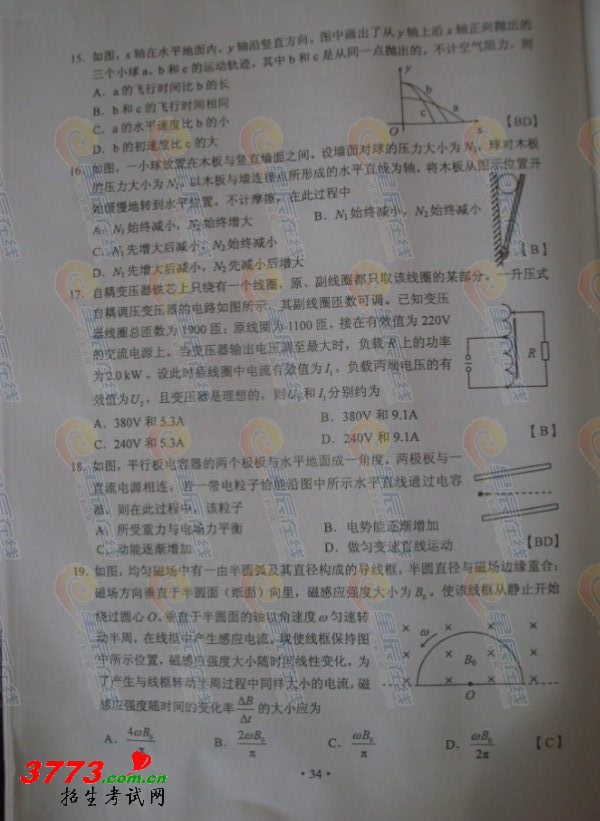 15. 如图,x轴在水平地面内,y轴沿竖直方向。图中画出了从y轴上沿x轴正向抛出的
三个小球a、b和c的运动轨迹,其中b和c是从同一点抛出的。不计空气阻力,则
A. a的飞行时间比b的长
B. b和c的飞行时间相同
C. a的水平速度比b的小
D. b的初速度比c的大
【BD】
y
b
c
a
O
x
16. 如图,一小球放置在木板与竖直墙面之间。设墙面对球的压力大小为N₁,球对木板
的压力大小为N₂。以木板与墙连接点所形成的水平直线为轴,将木板从图示位置开
始缓慢地转到水平位置。不计摩擦,在此过程中
A. N₁始终减小,N₂始终增大
B. N₁始终减小,N₂始终减小
C. N₁先增大后减小,N₂始终减小
D. N₁先增大后减小,N₂先减小后增大
【B】
17. 自耦变压器铁芯上只绕有一个线圈,原、副线圈都只取该线圈的某部分。一升压式
自耦调压变压器的电路如图所示,其副线圈匝数可调。已知变压
器线圈总匝数为1900匝;原线圈为1100匝,接在有效值为220V
的交流电源上。当变压器输出电压调至最大时,负载R上的功率
为2.0kW。设此时原线圈中电流有效值为I₁,负载两端电压的有
效值为U₂,且变压器是理想的,则U₂和I₁分别约为
R
A. 380V和5.3A
B. 380V和9.1A
C. 240V和5.3A
D. 240V和9.1A
【B】
18. 如图,平行板电容器的两个极板与水平地面成一角度,两极板与一
直流电源相连。若一带电粒子恰能沿图中所示水平直线通过电容
器,则在此过程中,该粒子
A. 所受重力与电场力平衡
B. 电势能逐渐增加
C. 动能逐渐增加
D. 做匀变速直线运动
【BD】
19. 如图,均匀磁场中有一由半圆弧及其直径构成的导线框,半圆直径与磁场边缘重合;
磁场方向垂直于半圆面(纸面)向里,磁感应强度大小为B₀。使该线框从静止开始
绕过圆心O、垂直于半圆面的轴以角速度ω匀速转
动半周,在线框中产生感应电流。现使线框保持图
中所示位置,磁感应强度大小随时间线性变化。为
了产生与线框转动半周过程中同样大小的电流,磁
感应强度随时间的变化率ΔB/Δt的大小应为
ω
B₀
O
A. 4ωB₀/π
B. 2ωB₀/π
C. ωB₀/π
D. ωB₀/2π
【C】
·34·
3773.com.cn
招生考试网